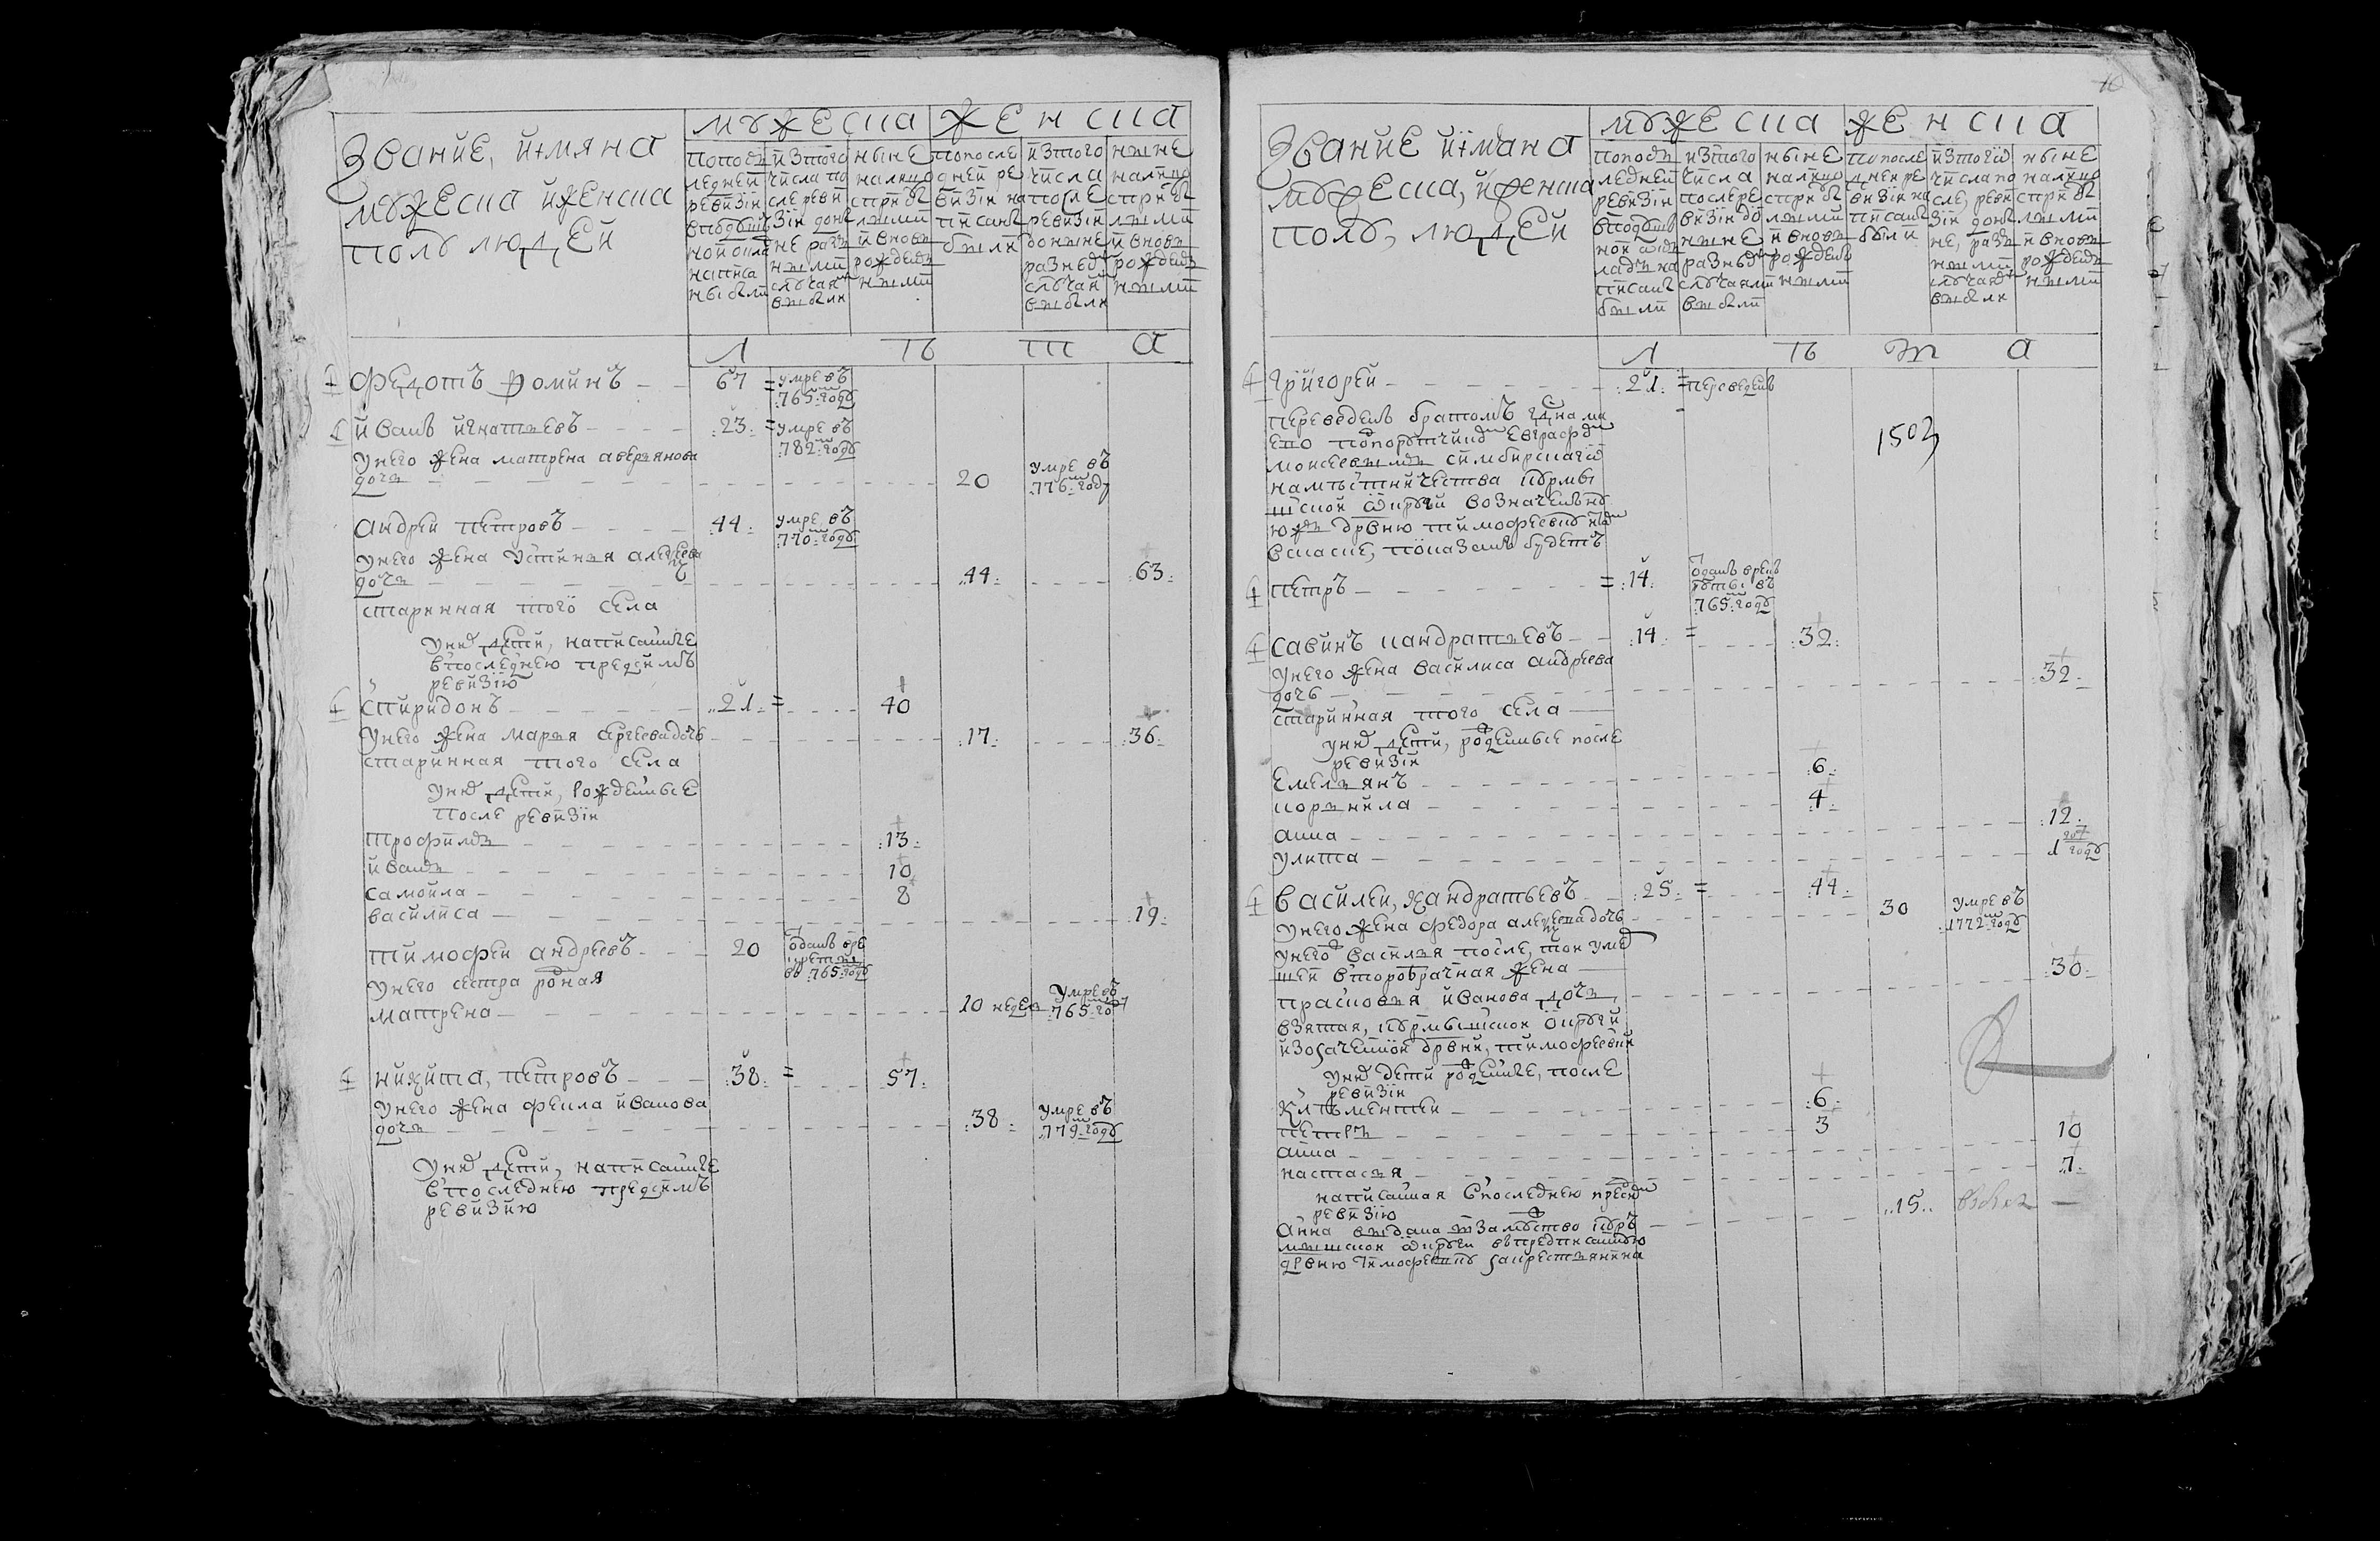 Звание, имяна
мужеска и женска
полу людей
мужеска
женска
по последней ревизии в подушной оклад написаны были
из того числа после ревизии до ныне разными случаями выбыли
ныне на лицо с прибылыми и вновь рожденными
по последней ревизии написаны были
из того числа после ревизии до ныне разными случаями выбыли
ныне на лицо с прибылыми и вновь рожденными
лѣта
Федотъ Фоминъ 67 умре въ 765 году
Иванъ Игнатьевъ 23 умре въ 782 году
У него жена Матрена Аверьянова
дочь 20 умре въ 776 году
Андрей Петровъ 44 умре въ 770 году
У него жена Устинья Алексеева
дочь 44 63
старинная того села
У них дети, написанные
в последнею пред сим
ревизию
Спиридонъ 21 40
У него жена Марья Сергеева дочь 17 36
старинная того села
У них дети, рожденные
после ревизии
Трофимъ 13
Иванъ 10
Самойла 8
Василиса 19
Тимофей Андреевъ 20 отданъ в рекруты во 765 году
У него сестра родная
Матрена 10 недель умре въ 765 году
Никита, Петровъ 38 57
У него жена Фекла Иванова
дочь 38 умре въ 779 году
У них дети, написанные
в последнею пред сим
ревизию
Звание имяна
мужеска, и женска
полу, людей
мужеска
женска
по последней ревизии в подушной оклад написаны были
из того числа после ревизии до ныне разными случаями выбыли
ныне на лицо с прибылыми и вновь рожденными
по последней ревизии написаны были
из того числа после ревизии до ныне разными случаями выбыли
ныне на лицо с прибылыми и вновь рожденными
лѣта
Григорей 21 переведенъ
переведенъ братомъ
порутчиком Евграфом
Моисеевымъ Симбирскаго
наместничества Курмышской
округи в означенную
ж дрвню Тимофеевку
в скаске, показанъ будетъ
1503
Петръ 14 отданъ в рекруты въ 765 году
Савинъ Кандратьевъ 14 32
У него жена Василиса Андреева
дочь 32
старинная того села
у них дети, рожденные после
ревизии
Емельянъ 6
Корнила 4
Анна 12
Улита 1 году
Василей, Кандратьевъ 25 44
У него жена Федора Алексеева дочь 30 умре въ 1772 году
У него Василья после, той умершей
второбрачная жена
Прасковья Иванова дочь, 30
взятая, Курмышской округи
из означенной дрвни, Тимофеевки
у них дети рожденные, после
ревизии
Клементей 6
Петръ 3
Анна 10
Настасья 7
написанная в последнею пред сим
ревизию
Анна выдана в замуство Курмышской 15
округи в предписанную
дрвню Тимофеевку за крестьянина